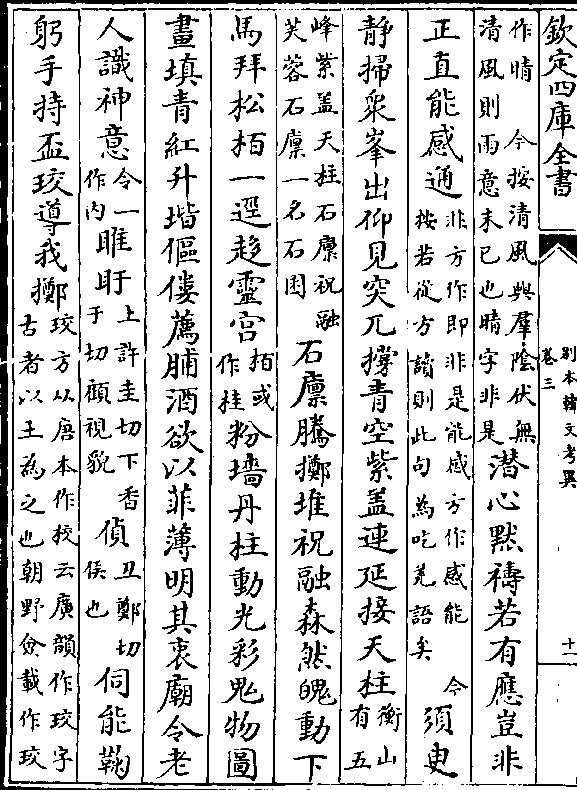 欽定四庫全書
別本韓文考異
卷三
十一
作晴　今按清風與羣陰伏無
清風則雨意未已也晴字非是
潛心默禱若有應豈非
正直能感通
非方作即非是能感方作感能　今
按若從方讀則此句為吃羌語矣
須臾
静掃衆峯出仰見突兀撐青空紫盖連延接天柱
衡山
有五
峰紫盖天柱石廩祝融
芙蓉石廩一名石囷
石廩騰擲堆祝融森然魄動下
馬拜松栢一逕趍靈宫
栢或
作桂
粉墻丹柱動光彩鬼物圖
畫填青紅升堦傴僂薦脯酒欲以菲薄明其衷廟令老
人識神意
令一
作内
睢盱
上許圭切下香
于切顧視貌
偵
丑鄭切
侯也
伺能鞠
躬手持盃珓導我擲
珓方从唐本作校云廣韻作珓字
古者以王為之也朝野僉載作珓